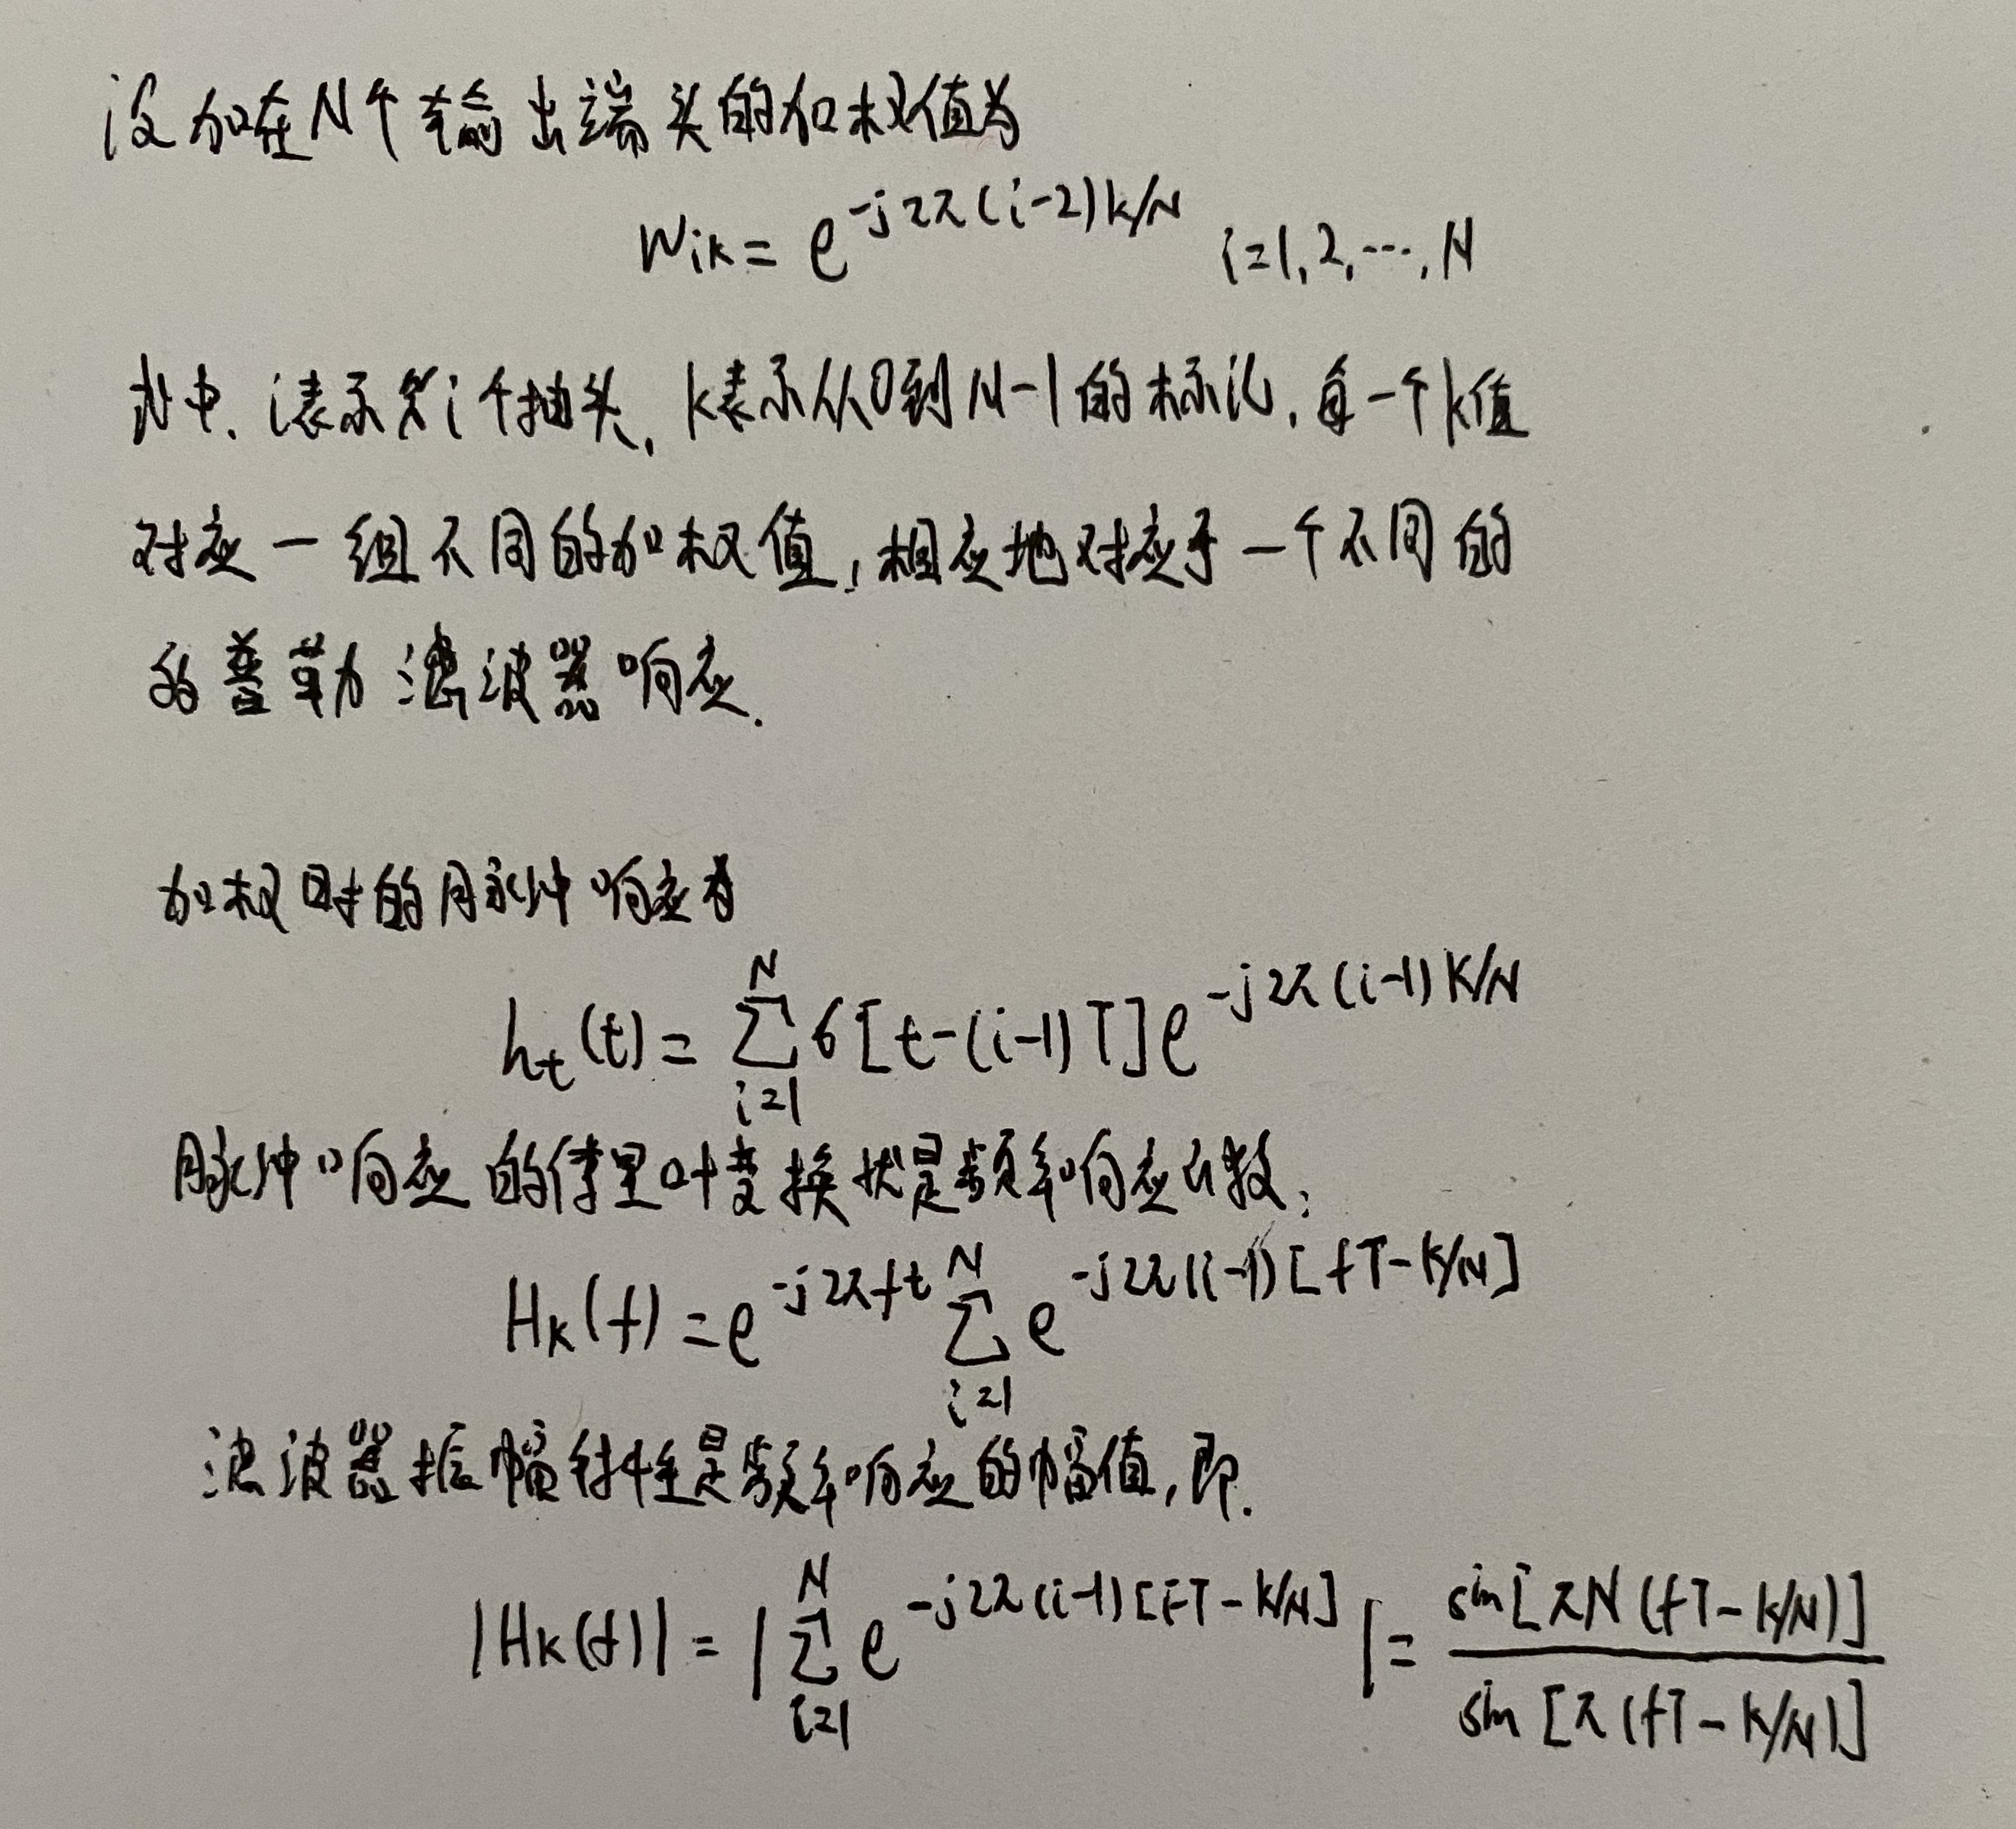 设加在N个输出端头的加权值为
Wik = e^{-j2π(i-2)k/N} i=1,2,…,N
式中, i表示第i个抽头, k表示从0到N-1的标记, 每一个k值
对应一组不同的加权值, 相应地对应于一个不同的
的普勒滤波器响应.
加权时的脉冲响应为
h_t(t) = ∑_{i=1}^{N} δ[t-(i-1)T]e^{-j2π(i-1)K/N}
脉冲响应的傅里叶变换状是频率响应函数:
H_K(f) = e^{-j2πft} ∑_{i=1}^{N} e^{-j2π(i-1)[fT-k/N]}
滤波器振幅特性是频率响应的幅值, 即.
|H_K(f)| = |∑_{i=1}^{N} e^{-j2π(i-1)[fT-K/N]}| = \frac{sin[πN(fT-k/N)]}{sin[π(fT-k/N)]}